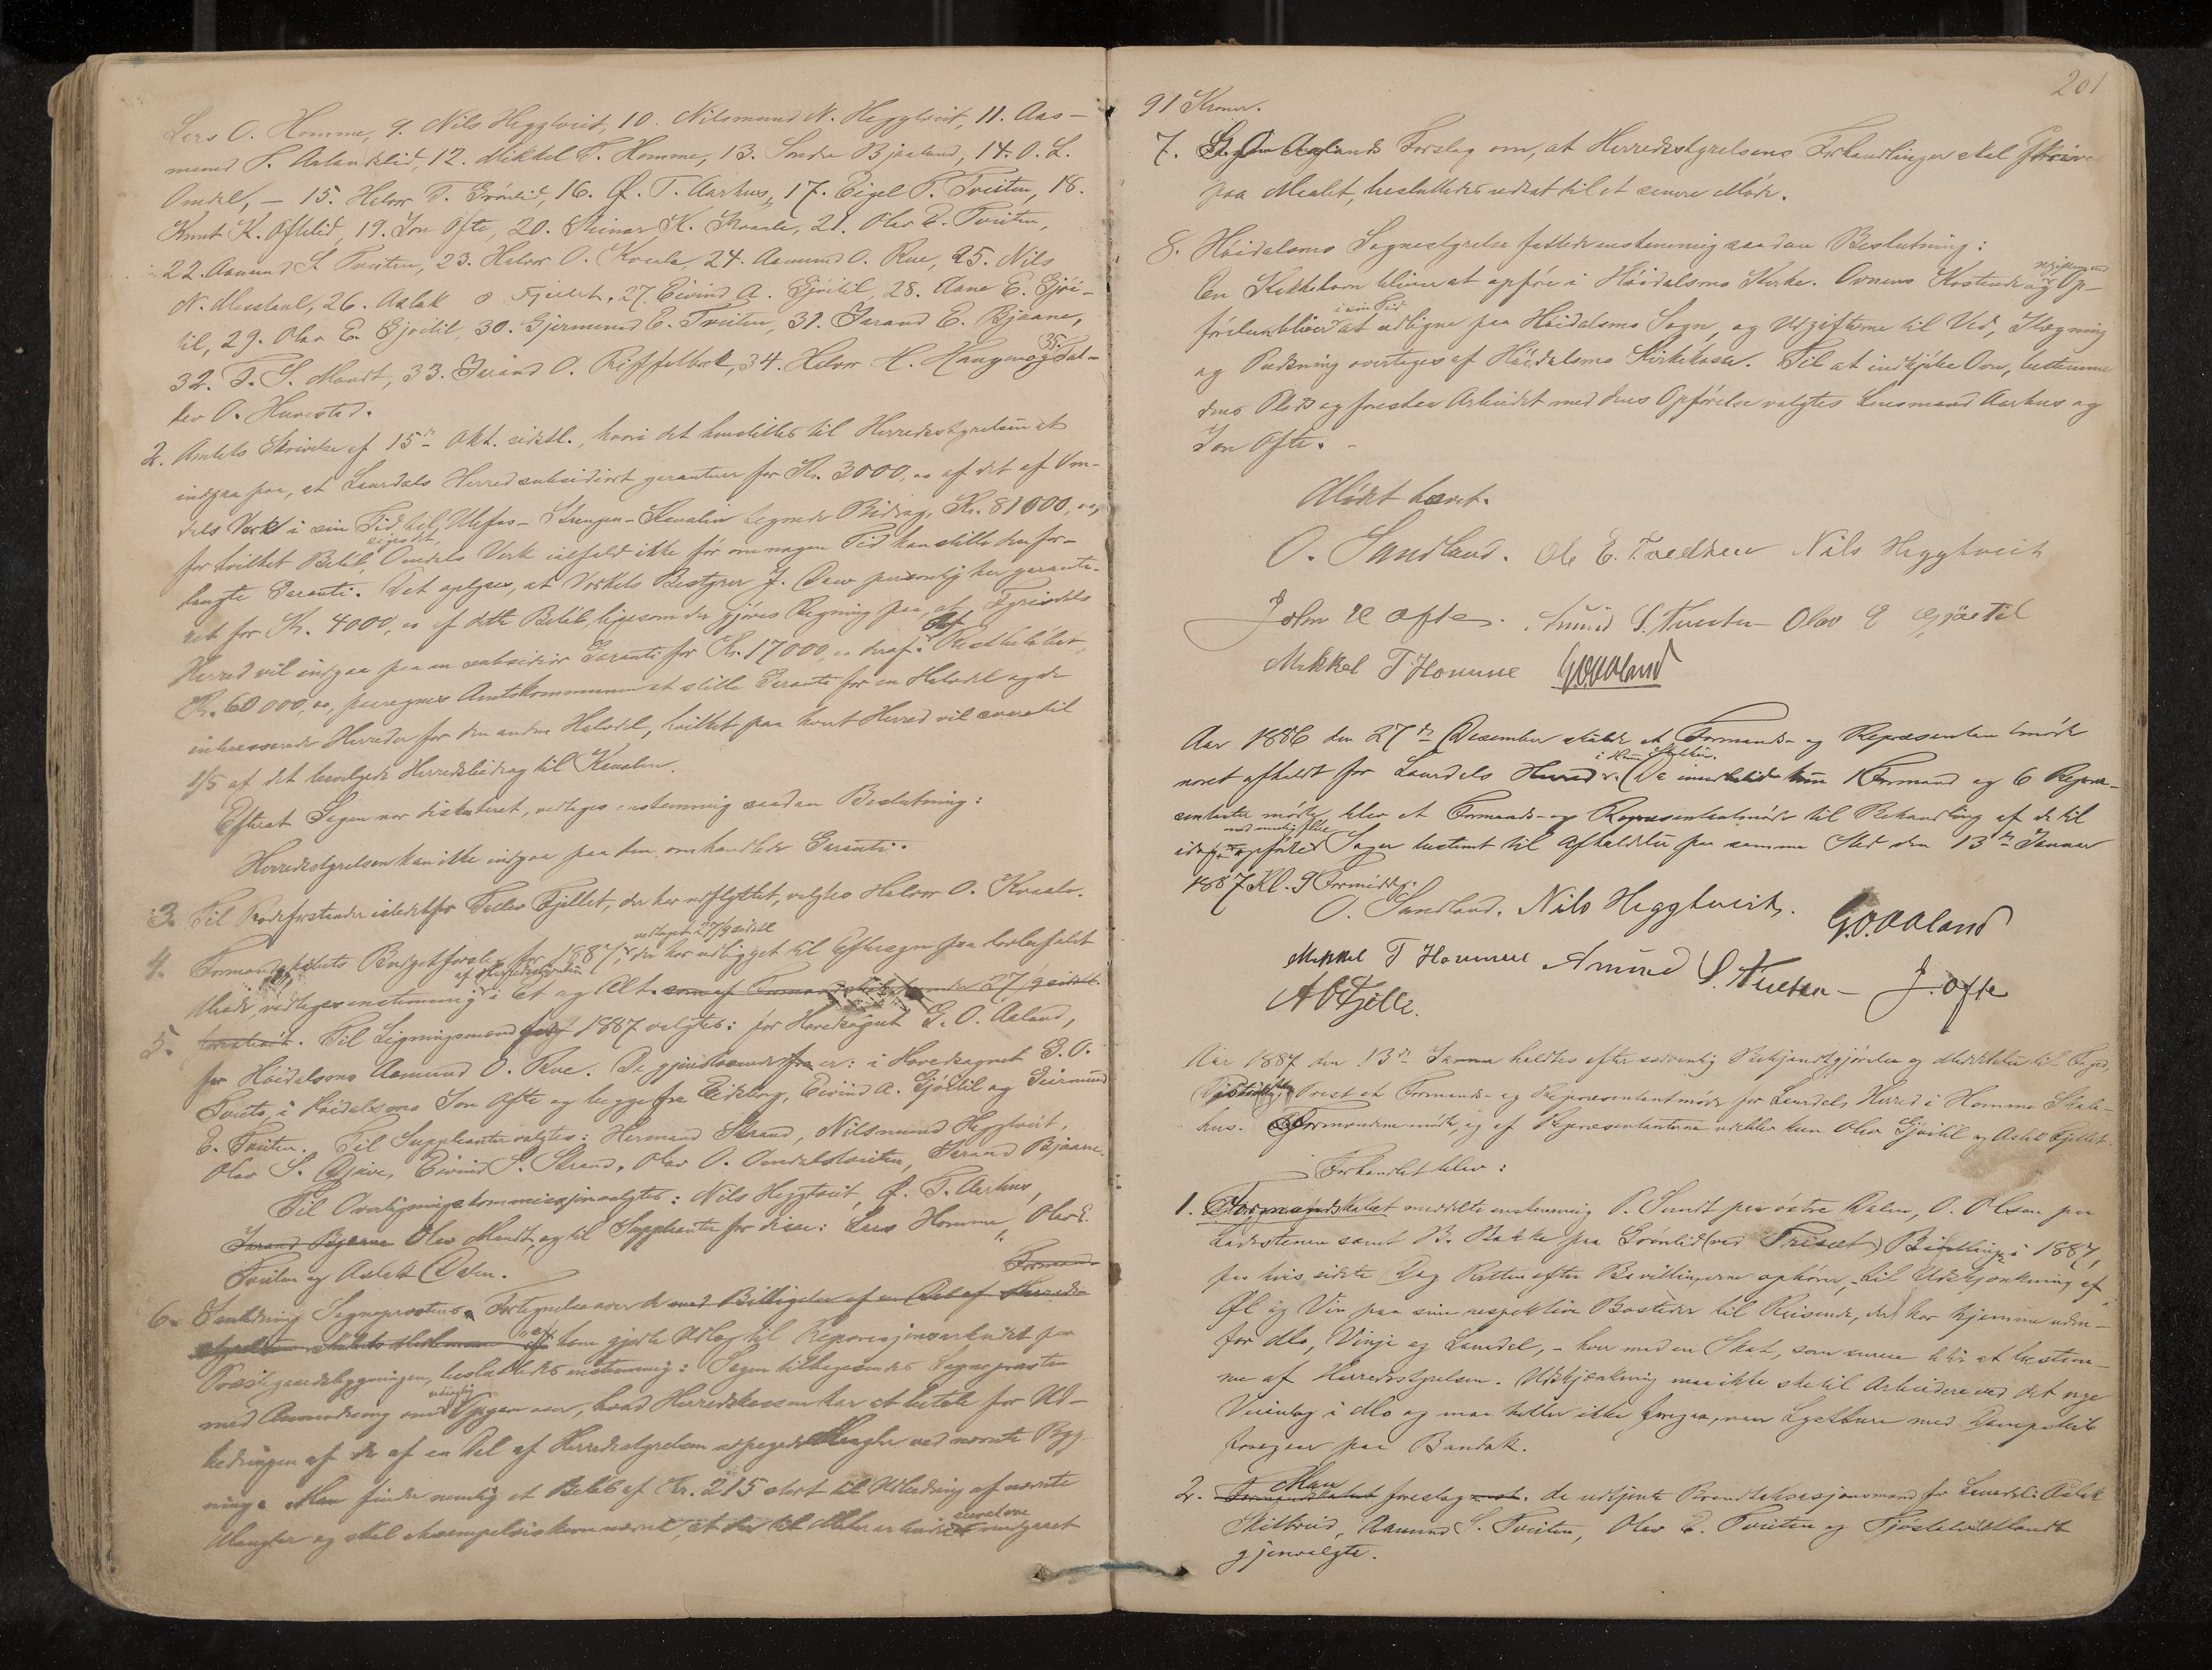 Lers O. Homme, 9. Nils Heggtveit, 10. Nilsmund N. Heggtveit, 11. Aas-
mund S. Aslandslid, 12. Mikkel T. Homme, 13. Sondre Bjaaland, 14. O. L.
Omdal, — 15. Halvor T. Grönlid, 16. Ø. T. Aarhus, 17. Eigel P. Tveiten, 18.
Knut K. Oftelid, 19. Jon Ofte, 20. Steinar K. Kvaale, 21. Olav E. Tveiten,
22. Aamund S. Tveiten, 23. Halvor O. Kvaale, 24. Aamund O. Rue, 25. Nils
N. Midstaul, 26. Aslak O Fjellet, 27. Eivind A. Gjöitil, 28. Aane E. Gjöi-
til, 29. Olav E. Gjöitil, 30. Gjermund E. Tveiten, 31. Jarand E. Bjaane,
32. T. S. Mandt, 33. Jarand O. Riffelbæk, 34. Halvor H. Haugen og 35. Tal-
lev O. Huvestad.
2. Amtets Skrivelse af 15de Okt. sidstl., hvori det henstilles til Herredsstyrelsen at
indgaa paa, at Laurdals Herred subsidiært garanterer for Kr. 3000,00 af det af Om-
dals Verk i sin Tid til Ulefos-Strengen-Kanalen tegnede Bidrag, Kr. 81000,00,
for hvilket Beløb, siges det, Omdals Verk ialfald ikke før om nogen Tid kan stille den for-
langte Garanti. Det oplyses, at Verkets Bestyrer J. Daw personlig har garante-
ret for Kr. 4000,00 af dette Beløb, ligesom der gjöres Regning paa, at Fyrisdals
Herred vil indgaa paa en subsidiær Garanti for Kr. 17000,00 deraf. Restbeløbet,
Kr. 60000,00, paaregnes Amtskommunen at stille Garanti for en Halvdel og de
interesserede Herreder for den anden Halvdel, hvilket paa hvert Herred vil svare til
1/5 af det bevilgede Herredsbidrag til Kanalen.
Efterat Sagen var diskuteret, vedtoges enstemmig saadan Beslutning:
Herredsstyrelsen kan ikke indgaa paa den omhandlede Garanti.
3. Til Rodeforstander istedetfor Tellev Fjellet, der har udflyttet, valgtes Halvor O. Kvaale.
4. Formandskabets Budgetforslag for 1887, vedtaget 27/9 sidstl, der har udligget til Eftersyn paa lovbefalet
Maade, vedtoges enstemmig af Herredsstyrelsen i Et og Alt. som af Formandskabet under 27/9 sidstl.
5. foreslaaet. Til Ligningsmænd for 1887 valgtes: for Hovedsognet G. O. Aaland,
for Höidalsmo Aamund O. Rue. De gjenstaaende er: i Hovedsognet G. O.
Tveito, i Höidalsmo Jon Ofte og begge fra Eidsborg, Eivind A. Gjöitil og Geirmund
E. Tveiten. Til Suppleanter valgtes: Hermand Strand, Nilsmund Heggtveit,
Olav S. Gjøive, Eivind S. Strand, Olav O. Omdalstveiten, Jarand Bjaane.
Til Overligningskommissjon valgtes: Nils Heggtveit, Ø. T. Aarhus,
Jarand Bjaane Olav Mandt, og til Suppleanter for disse: Lars Homme, Olav E.
Tveiten og Aslak Dalen.
6. Sognepræstens Fortegnelse over de med Billigelse af en Del af Herreds-
han gjorte Udlæg til Reparasjonsarbeidet paa
Præstegaardsbygningen, besluttedes enstemmig: Sagen tilbagesendes Sognepræsten
med Anmodning om nöiagtig Opgave over, hvad Herredskassen har at betale for Ud-
bedringen af de af en Del af Herredsstyrelsen udpegede Mangler ved nævnte Byg-
ning. Man finder nemlig et Beløb af Kr. 215 stort til Udbedring af nævnte
Mangler og skal exempelvis kun nævne, at der til Maler er medgaaet
201
91 Kroner.
7. G. O. Aalands Forslag om, at Herredsstyrelsens Forhandlinger skal föres
paa Maalet, besluttedes udsat til et senere Møde.
8. Höidalsmo Sognestyrelse fattede enstemmig saadan Beslutning:
En Kakkelovn bliver at opföre i Höidalsmo Kirke. Ovnens Kostende og Op-
förelse bliver i sin Tid at udligne paa Höidalsmo Sogn, og Udgifterne til Ved, Ilægning
og Pudsning overtages af Höidalsmo Kirkekasse. Til at indkjöbe Ovn, bestemme
dens Plads og forestaa Arbeidet med dens Opförelse valgtes Lensmand Aarhus og
Jon Ofte. -
Mödet hævet.
O. Sandland. Ole E. Tvedten Nils Heggtveit
John K Ofte. Amund S. Tveiten Olav E Gjöitil
Mekkel T. Homme G.O.Aaland
Aar 1886 den 27de Desember skulde et Formands- og Repræsentantmøde
været afholdt for Laurdals Herred i Homme Skolehus. Da imidlertid kun 1 Formand og 6 Repræ-
sentanter mödte, blev et Formands- og Repræsentantmøde til Behandling af de til
idag opförte med mulig flere Sager bestemt til Afholdelse paa samme Sted den 13de Januar
1887 Kl. 9 Formiddag.
O. Sandland. Nils Heggtveit. G.O.Aaland
Mekkel T Homme Amund S. Tveiten — J. Ofte
A O Fjelle.
Aar 1887 den 13de Januar holdtes efter sedvanlig Bekjendtgjörelse og Meddelelse til Foged,
Præst et Formands- og Repræsentantmøde for Laurdals Herred i Homme Skole-
hus. Formændene mødte, og af Repræsentanterne udeblev kun Olav Gjöitil og Aslak Fjellet.
Forhandlet blev:
1. Formandskabet meddelte enstemmig P. Sundt paa østre Dalen, O. Olsen paa
Ladestenen samt B. Bakke paa Grönlid (ved Triset) Bevillinger i 1887,
paa hvis sidste Dag Retten efter Bevillingerne ophörer, til Udskjænkning af
Øl og Vin paa sine respektive Bosteder til Reisende, der har hjemme uden-
for Mo, Vinje og Laurdal, - hver mod en Skat, som senere blir at bestem-
me af Herredsstyrelsen. Udskjænkning maa ikke ske til Arbeidere ved det nye
Veianlæg i Mo og maa heller ikke foregaa, naar Lystture med Dampskib
foregaar paa Bandak.
2. Formandskabet Man foreslog de udgjente Brandtaksasjonsmænd for Laurdal: Aslak
Skiltveid, Aamund S. Tveiten, Olav E. Tveiten og Tjöstolv Mandt
gjenvalgte.